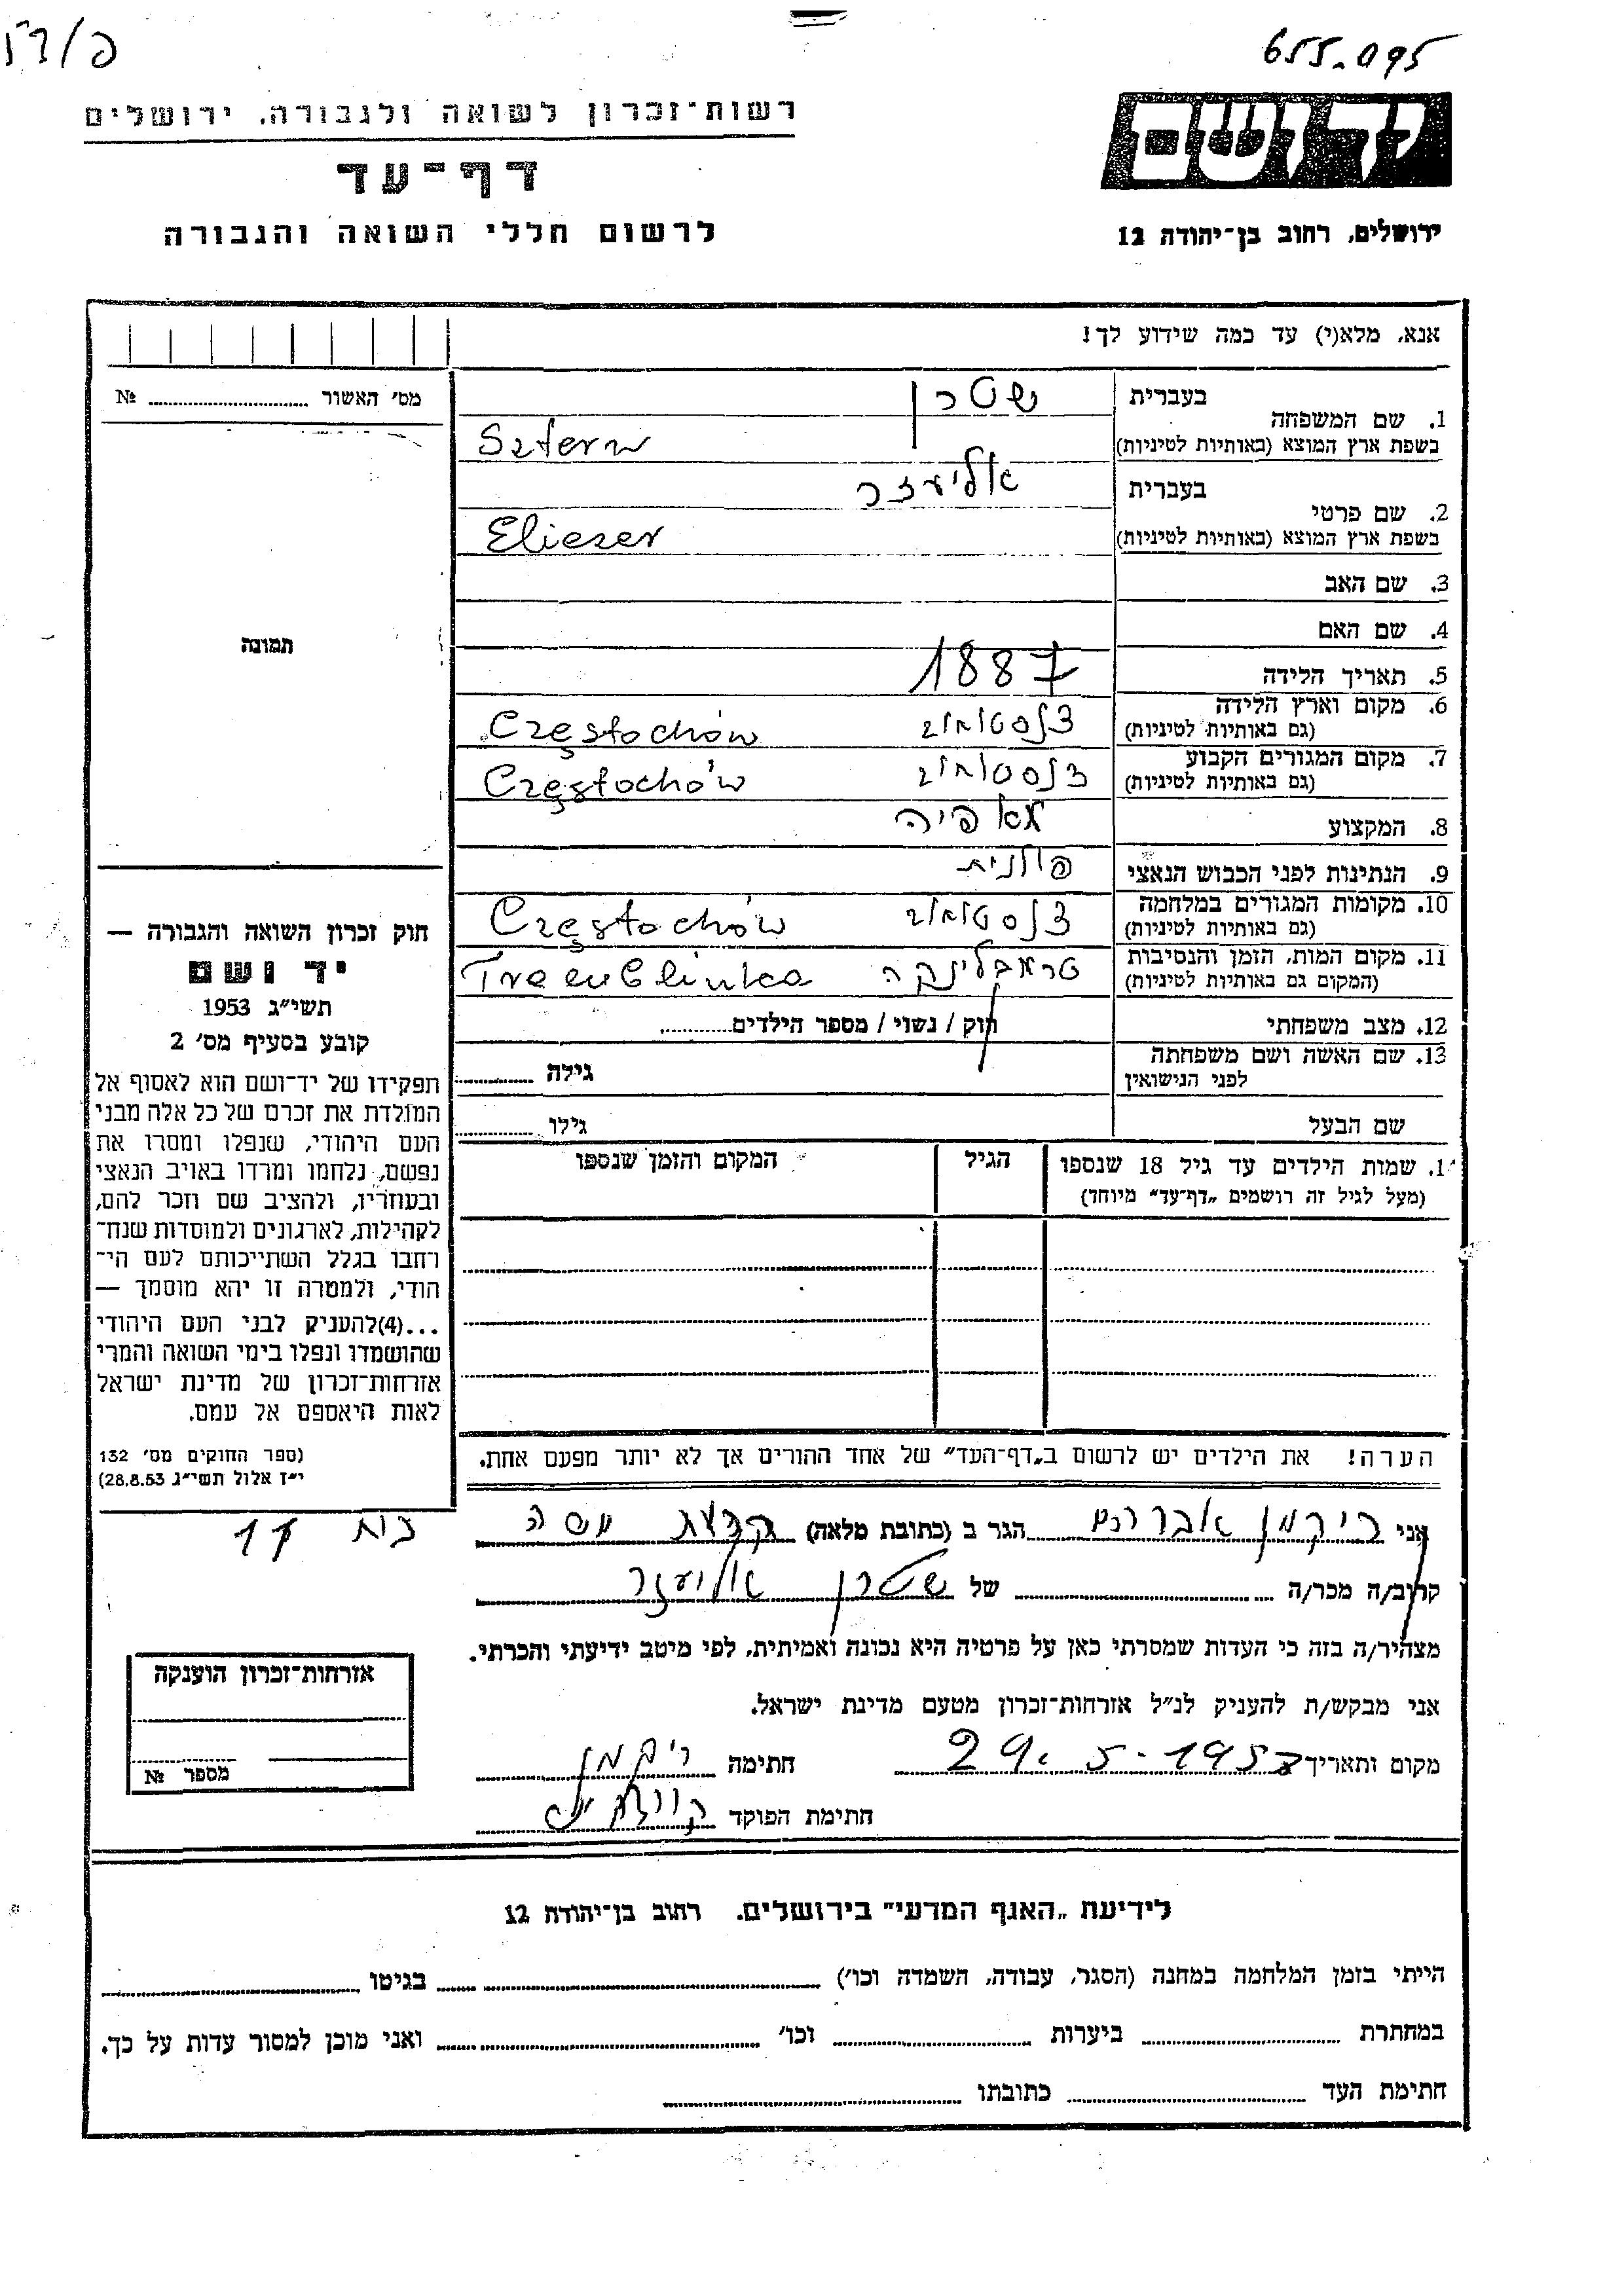 655.095
יד ושם
ירושלים, רחוב בן־יהודה 12
רשות־זכרון לשואה ולגבורה, ירושלים
דף־עד
לרשום חללי השואה והגבורה
אנא, מלא(י) עד כמה שידוע לך!
מס׳ האשור № 
1. שם המשפחה
בעברית שטרן
בשפת ארץ המוצא (באותיות לטיניות) Sztern
2. שם פרטי
בעברית אליעזר
בשפת ארץ המוצא (באותיות לטיניות) Elieser
3. שם האב
4. שם האם
5. תאריך הלידה 1887
6. מקום וארץ הלידה
(גם באותיות לטיניות) צ'נסטוחוב Częstochów
7. מקום המגורים הקבוע
(גם באותיות לטיניות) צ'נסטוחוב Częstochów
8. המקצוע מאפיה
9. הנתינות לפני הכבוש הנאצי פולנית
10. מקומות המגורים במלחמה
(גם באותיות לטיניות) צ'נסטוחוב Częstochów
11. מקום המות, הזמן והנסיבות
(המקום גם באותיות לטיניות) טרמבלינקה Tremblinka
12. מצב משפחתי רווק / נשוי / מספר הילדים
13. שם האשה ושם משפחתה
לפני הנישואין גילה
שם הבעל גילו
שמות הילדים עד גיל 18 שנספו
(מעל לגיל זה רושמים „דף־עד״ מיוחד)
הגיל
המקום והזמן שנספו
הערה! את הילדים יש לרשום ב„דף־העד״ של אחד ההורים אך לא יותר מפעם אחת.
תמונה
חוק זכרון השואה והגבורה —
יד ושם
תשי״ג 1953
קובע בסעיף מס׳ 2
תפקידו של יד־ושם הוא לאסוף אל
המולדת את זכרם של כל אלה מבני
העם היהודי, שנפלו ומסרו את
נפשם, נלחמו ומרדו באויב הנאצי
ובעוזריו, ולהציב שם וזכר להם,
לקהילות, לארגונים ולמוסדות שנח־
רבו בגלל השתייכותם לעם הי־
הודי, ולמטרה זו יהא מוסמך —
...(4)להעניק לבני העם היהודי
שהושמדו ונפלו בימי השואה והמרי
אזרחות־זכרון של מדינת ישראל
לאות היאספם אל עמם.
(ספר החוקים מס׳ 132
י״ז אלול תשי״ג 28.8.53)
אני ריקמן אברהם הגר ב (כתובת מלאה) גבעת
קרוב/ה מכר/ה של שטרן אליעזר
מצהיר/ה בזה כי העדות שמסרתי כאן על פרטיה היא נכונה ואמיתית, לפי מיטב ידיעתי והכרתי.
אני מבקש/ת להעניק לנ״ל אזרחות־זכרון מטעם מדינת ישראל.
מקום ותאריך 29.5.1957 חתימה ריקמן
חתימת הפוקד
אזרחות־זכרון הוענקה
מספר №
לידיעת „האגף המדעי״ בירושלים. רחוב בן־יהודה 12
הייתי בזמן המלחמה במחנה (הסגר, עבודה, השמדה וכו׳) בגיטו
במחתרת ביערות וכו׳ ואני מוכן למסור עדות על כך.
חתימת העד כתובתו